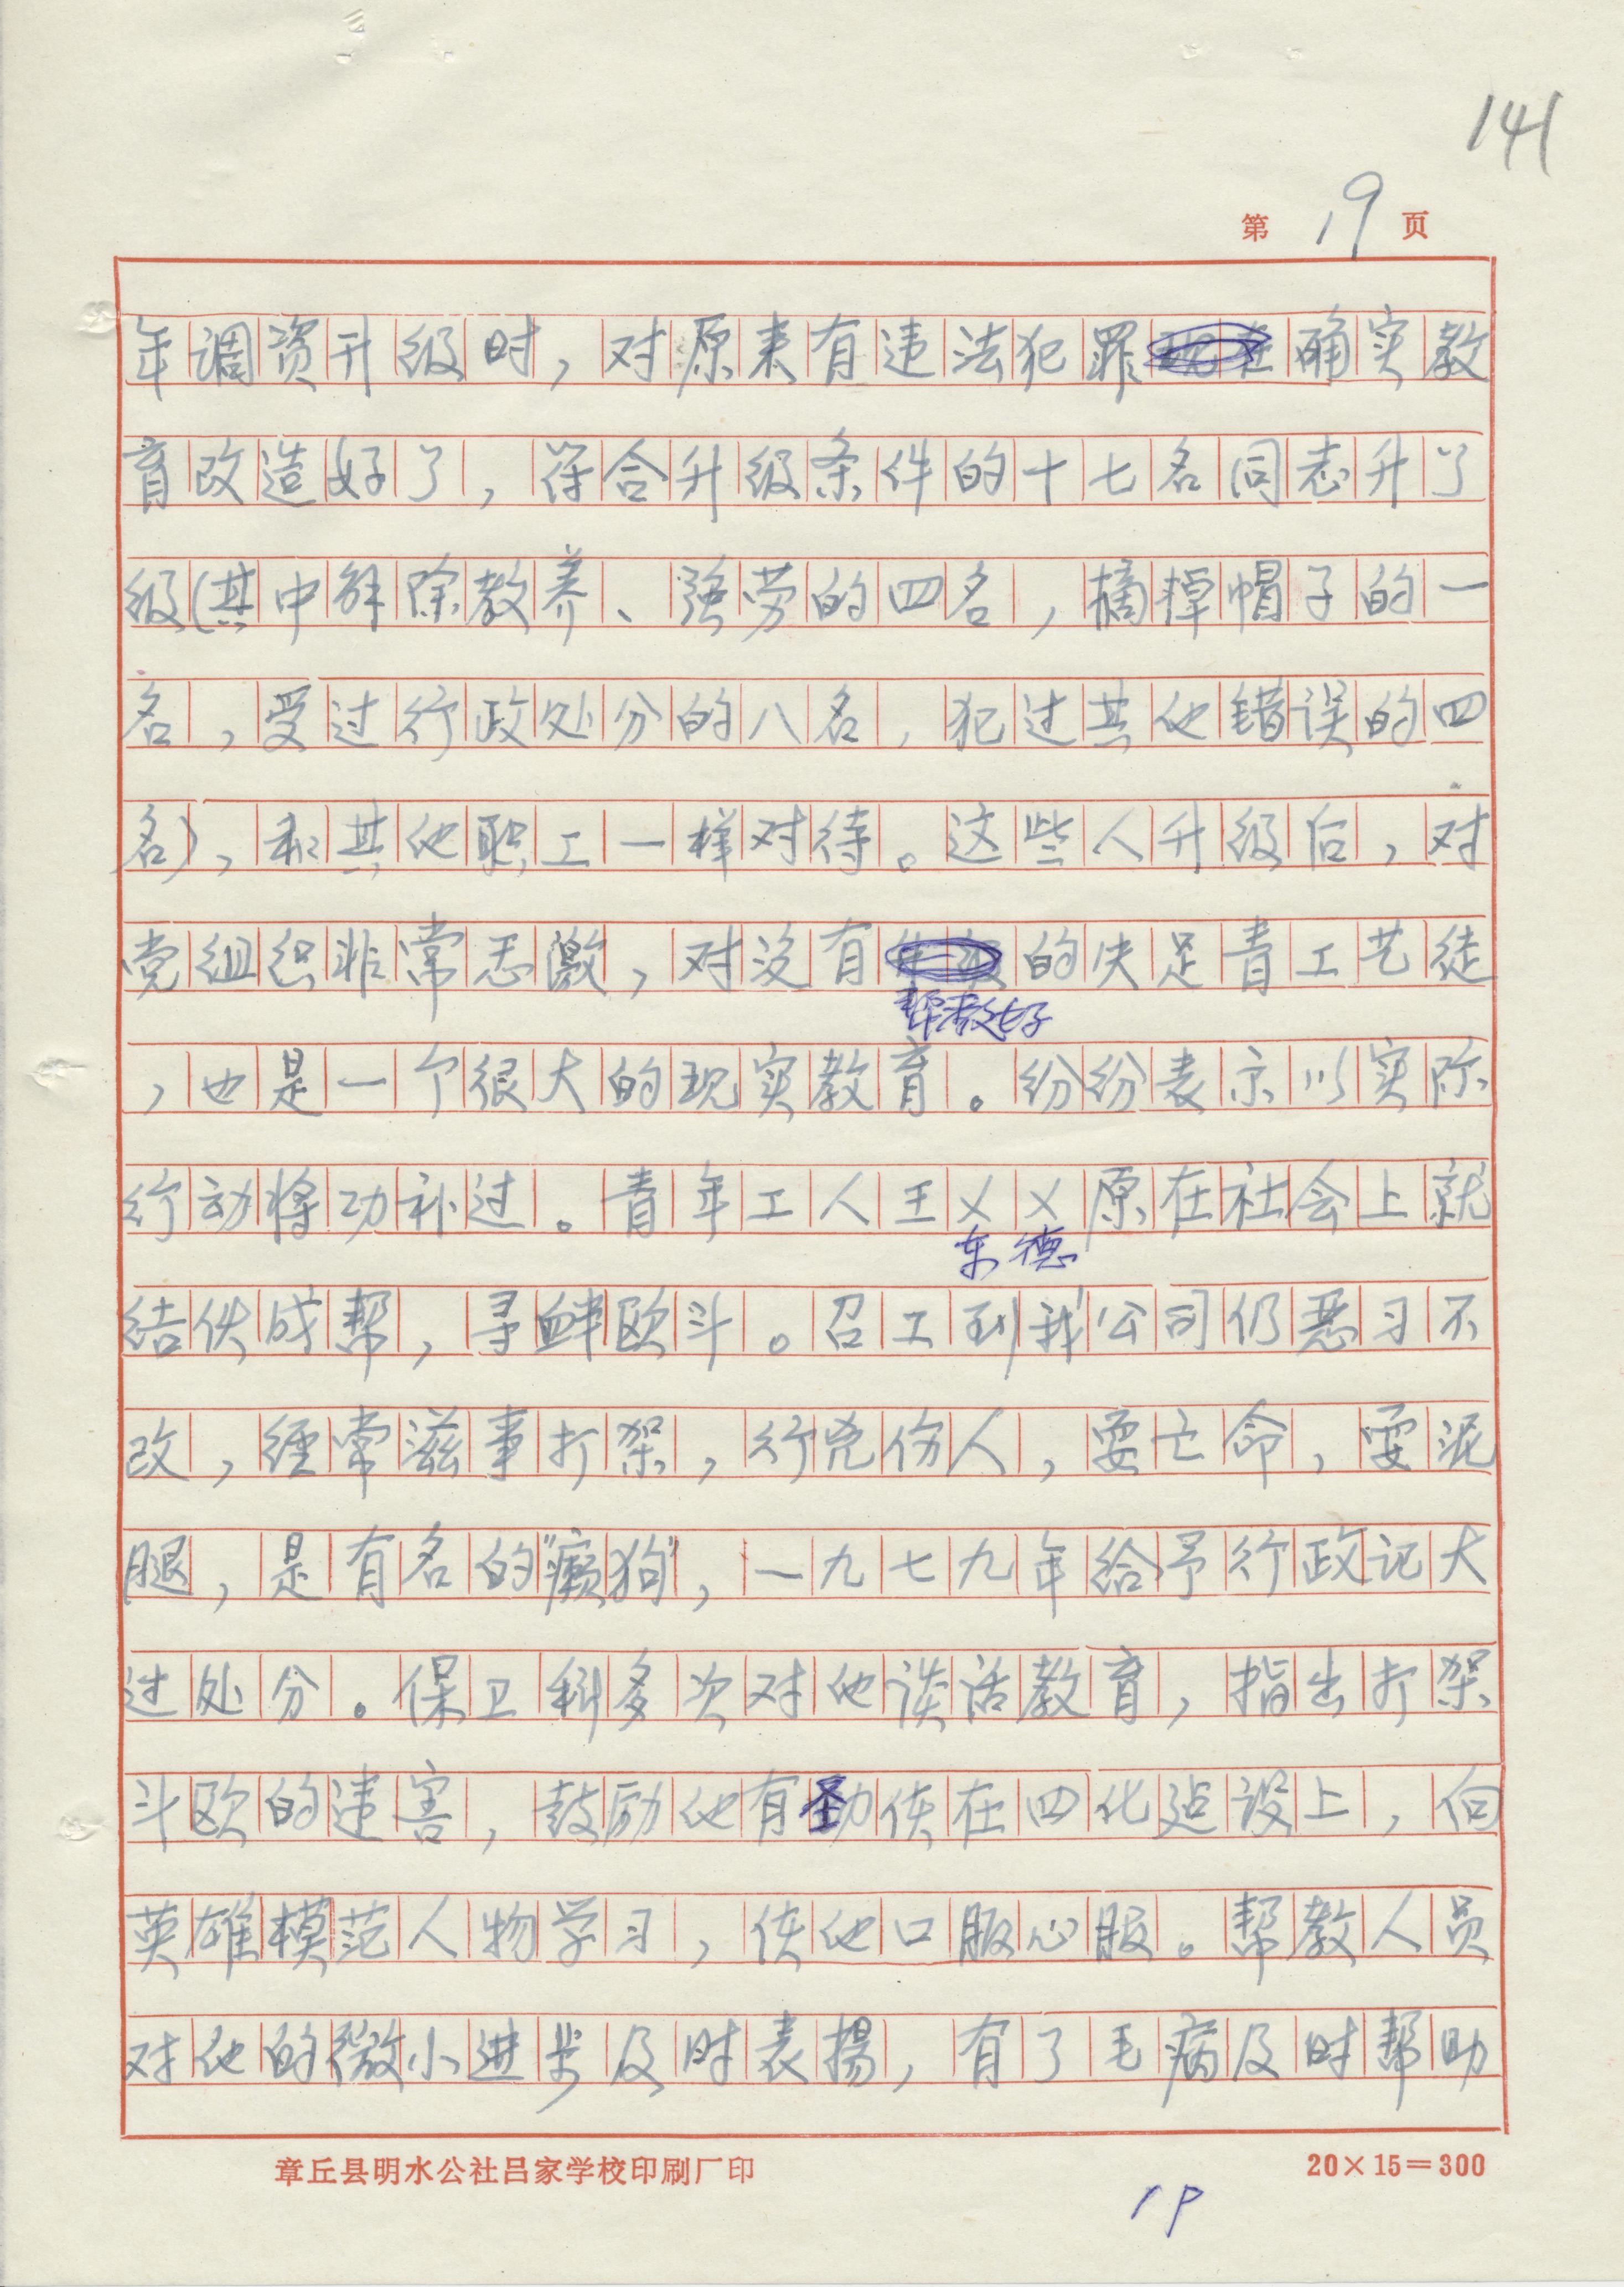 141
第 19 页
年调资升级时，对原来有违法犯罪确实教
育改造好了，符合升级条件的十七名同志升了
级（其中解除教养、强劳的四名，摘掉帽子的一
名，受过行政处分的八名，犯过其他错误的四
名），和其他职工一样对待。这些人升级后，对
党组织非常感激，对没有的失足青工艺徒
帮教好
，也是一个很大的现实教育。纷纷表示以实际
行动将功补过。青年工人王××原在社会上就
东德
结伙成帮，寻衅欧斗。召工到我公司仍恶习不
改，经常滋事打架，行凶伤人，耍亡命，耍泥
腿，是有名的“癞狗”，一九七九年给予行政记大
过处分。保卫科多次对他谈话教育，指出打架
斗欧的违害，鼓励他有劲使在四化建设上，向
英雄模范人物学习，使他口服心服。帮教人员
对他的微小进步及时表揚，有了毛病及时帮助
章丘县明水公社吕家学校印刷厂印
20×15=300
19